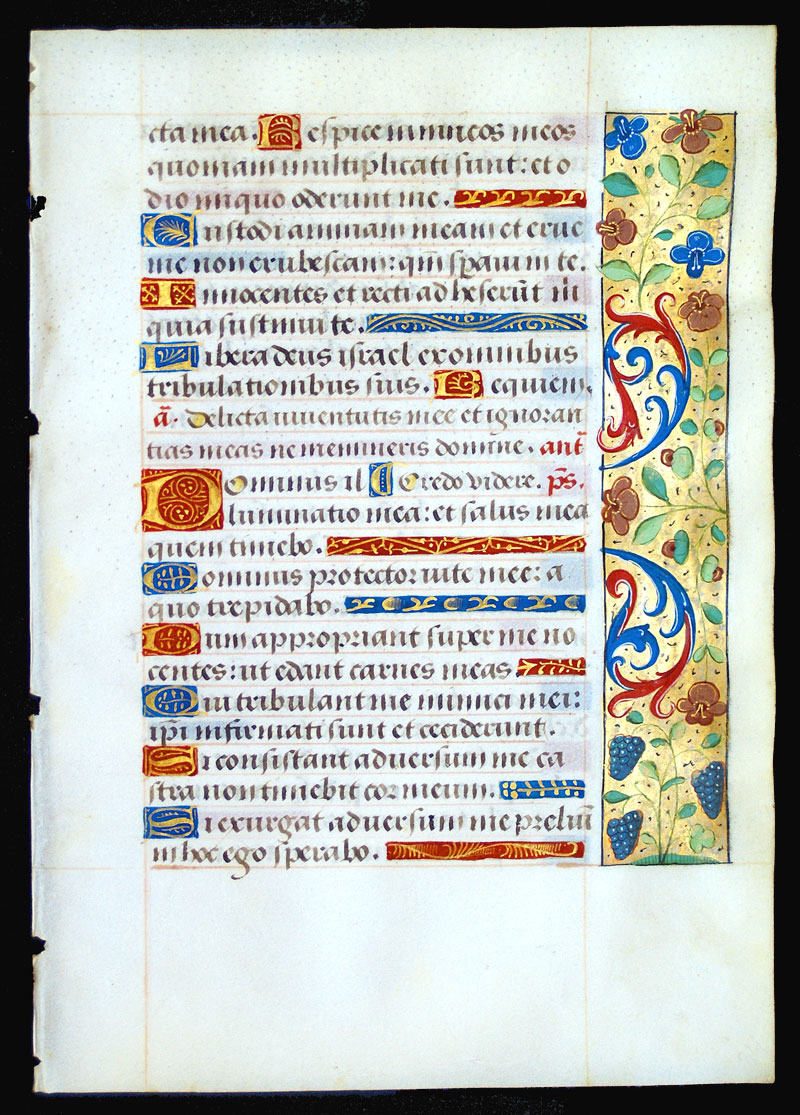 cta mea. Respice inimicos meos
quoniam multiplicati sunt: et o
dio iniquo oderunt me.
Custodi animam meam et erue
me non erubescam: qm̄ sꝑaui in te.
Innocentes et recti adheserūt m̄
quia sustinui te.
Libera deus israel ex omnibus
tribulationibus suis. Requiem.
ā. Delicta iuuentutis mee et ignoran
tias meas ne memineris domine. ant̄
Dominus il Credo videre. p̄s.
luminatio mea: et salus mea
quem timebo.
Dominus protector uite mee: a
quo trepidabo.
Dum appropriant super me no
centes: ut edant carnes meas
Qui tribulant me inimici mei:
ip̄i infirmati sunt et ceciderunt.
Si consistant aduersum me ca
stra non timebit cor meum.
Si exurgat aduersum me preliū
in hoc ego sperabo.